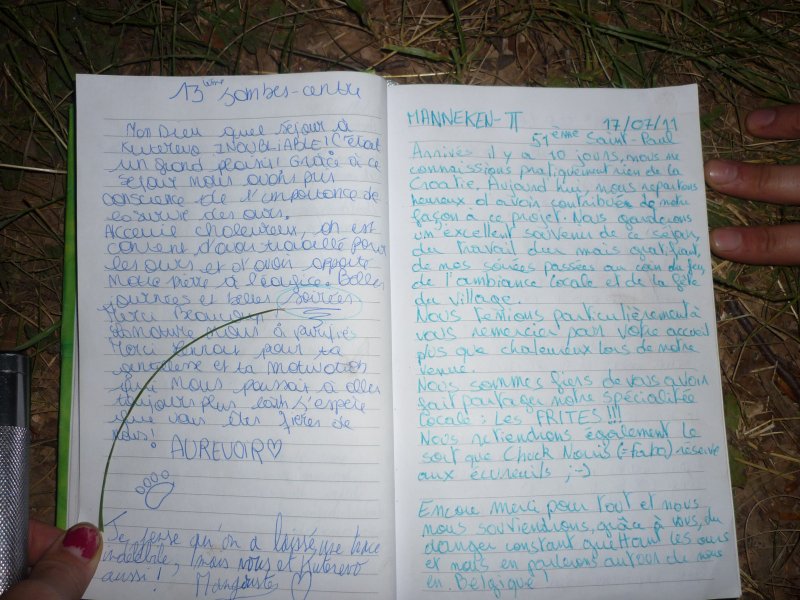 13ème Sombes-centre
Mon Dieu quel séjour à
Kuterevo INOUBLIABLE! C'était
un grand plaisir! Grâce à ce
séjour nous avons pris
conscience de l'importance de
la survie des ours.
Accueil chaleureux, on est
content d'avoir travaillé pour
les ours et d'avoir apporté
notre pierre à l'édifice. Belles
journées et belles Soirées
Merci Beaucoup
Merci pour ta
et ta motivation
qui nous poussait à aller
toujours plus loin. J'espère
que vous êtes fières de
nous!
AUREVOIR♡
Je pense qu'on a laissé une trace
indélébile, mais vous et Kuterevo
aussi! Mangoustes ♡
MANNEKEN-π 17/07/11
51ème Saint-Paul
Arrivés il y a 10 jours, nous ne
connaissions pratiquement rien de la
Croatie. Aujourd'hui, nous repartons
heureux d'avoir contribués de notre
façon à ce projet. Nous garderons
un excellent souvenir de ce séjour,
du travail dur mais gratifiant,
de nos soirées passées au coin du feu,
de l'ambiance locale et de la fête
du village.
Nous tenions particulièrement à
vous remercier pour votre accueil
plus que chaleureux lors de notre
venue.
Nous sommes fiers de vous avoir
fait partager notre spécialité
locale : Les FRITES !!!
Nous retiendrons également le
sort que Chuck Nouris (=Fabo) réserve
aux écureuils ;-)
Encore merci pour tout et nous
nous souviendrons, grâce à vous, du
danger constant guettant les ours
et nous en parlerons autour de nous
en Belgique!